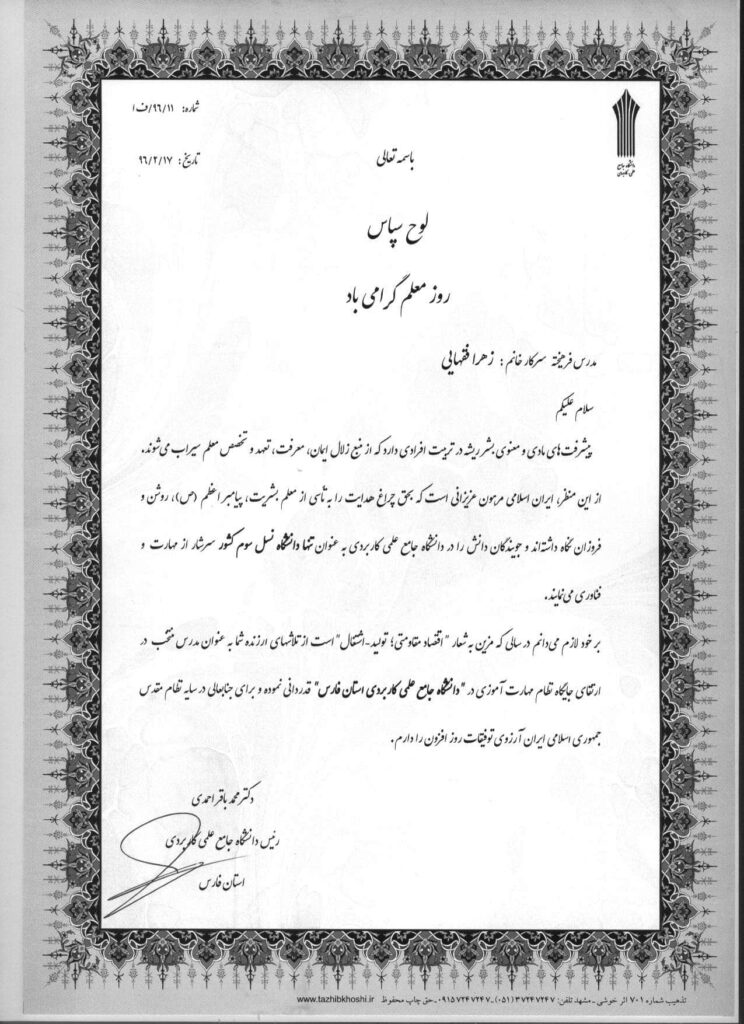 شماره: ۹۶/۱۱/ف۱
تاریخ: ۹۶/۲/۱۷
دانشگاه جامع
علمی کاربردی
باسمه تعالی
لوح سپاس
روز معلم گرامی باد
مدرس فرهیخته سرکار خانم: زهرا فقهایی
سلام علیکم
پیشرفت‌های مادی و معنوی بشر ریشه در تربیت افرادی دارد که از منبع زلال ایمان، معرفت، تعهد و تخصص معلم سیراب می‌شوند.
از این منظر، ایران اسلامی مرهون عزیزانی است که بحق چراغ هدایت را به تاسی از معلم بشریت، پیامبر اعظم (ص)، روشن و
فروزان نگاه داشته‌اند و جویندگان دانش را در دانشگاه جامع علمی کاربردی به عنوان تنها دانشگاه نسل سوم کشور سرشار از مهارت و
فناوری می‌نمایند.
بر خود لازم می‌دانم در سالی که مزین به شعار "اقتصاد مقاومتی؛ تولید-اشتغال" است از تلاشهای ارزنده شما به عنوان مدرس منتخب در
ارتقای جایگاه نظام مهارت آموزی در "دانشگاه جامع علمی کاربردی استان فارس" قدردانی نموده و برای جنابعالی در سایه نظام مقدس
جمهوری اسلامی ایران آرزوی توفیقات روز افزون را دارم.
دکتر محمد باقر احمدی
رئیس دانشگاه جامع علمی کاربردی
استان فارس
تذهیب شماره ۷۰۱ اثر خوشی - مشهد تلفن: ۳۷۲۴۷۲۴۷ (۰۵۱) - ۰۹۱۵۷۲۴۷۲۴۷ - حق چاپ محفوظ www.tazhibkhoshi.ir